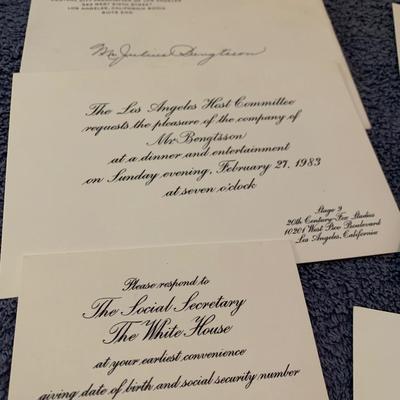 593 WEST SIXTH STREET
LOS ANGELES, CALIFORNIA 90014
SUITE 800
Mr Julius Bengtsson
The Los Angeles Host Committee
requests the pleasure of the company of
Mr Bengtsson
at a dinner and entertainment
on Sunday evening, February 27, 1983
at seven o'clock
Stage 9
20th Century-Fox Studios
10201 West Pico Boulevard
Los Angeles, California
Please respond to
The Social Secretary
The White House
at your earliest convenience
giving date of birth and social security number